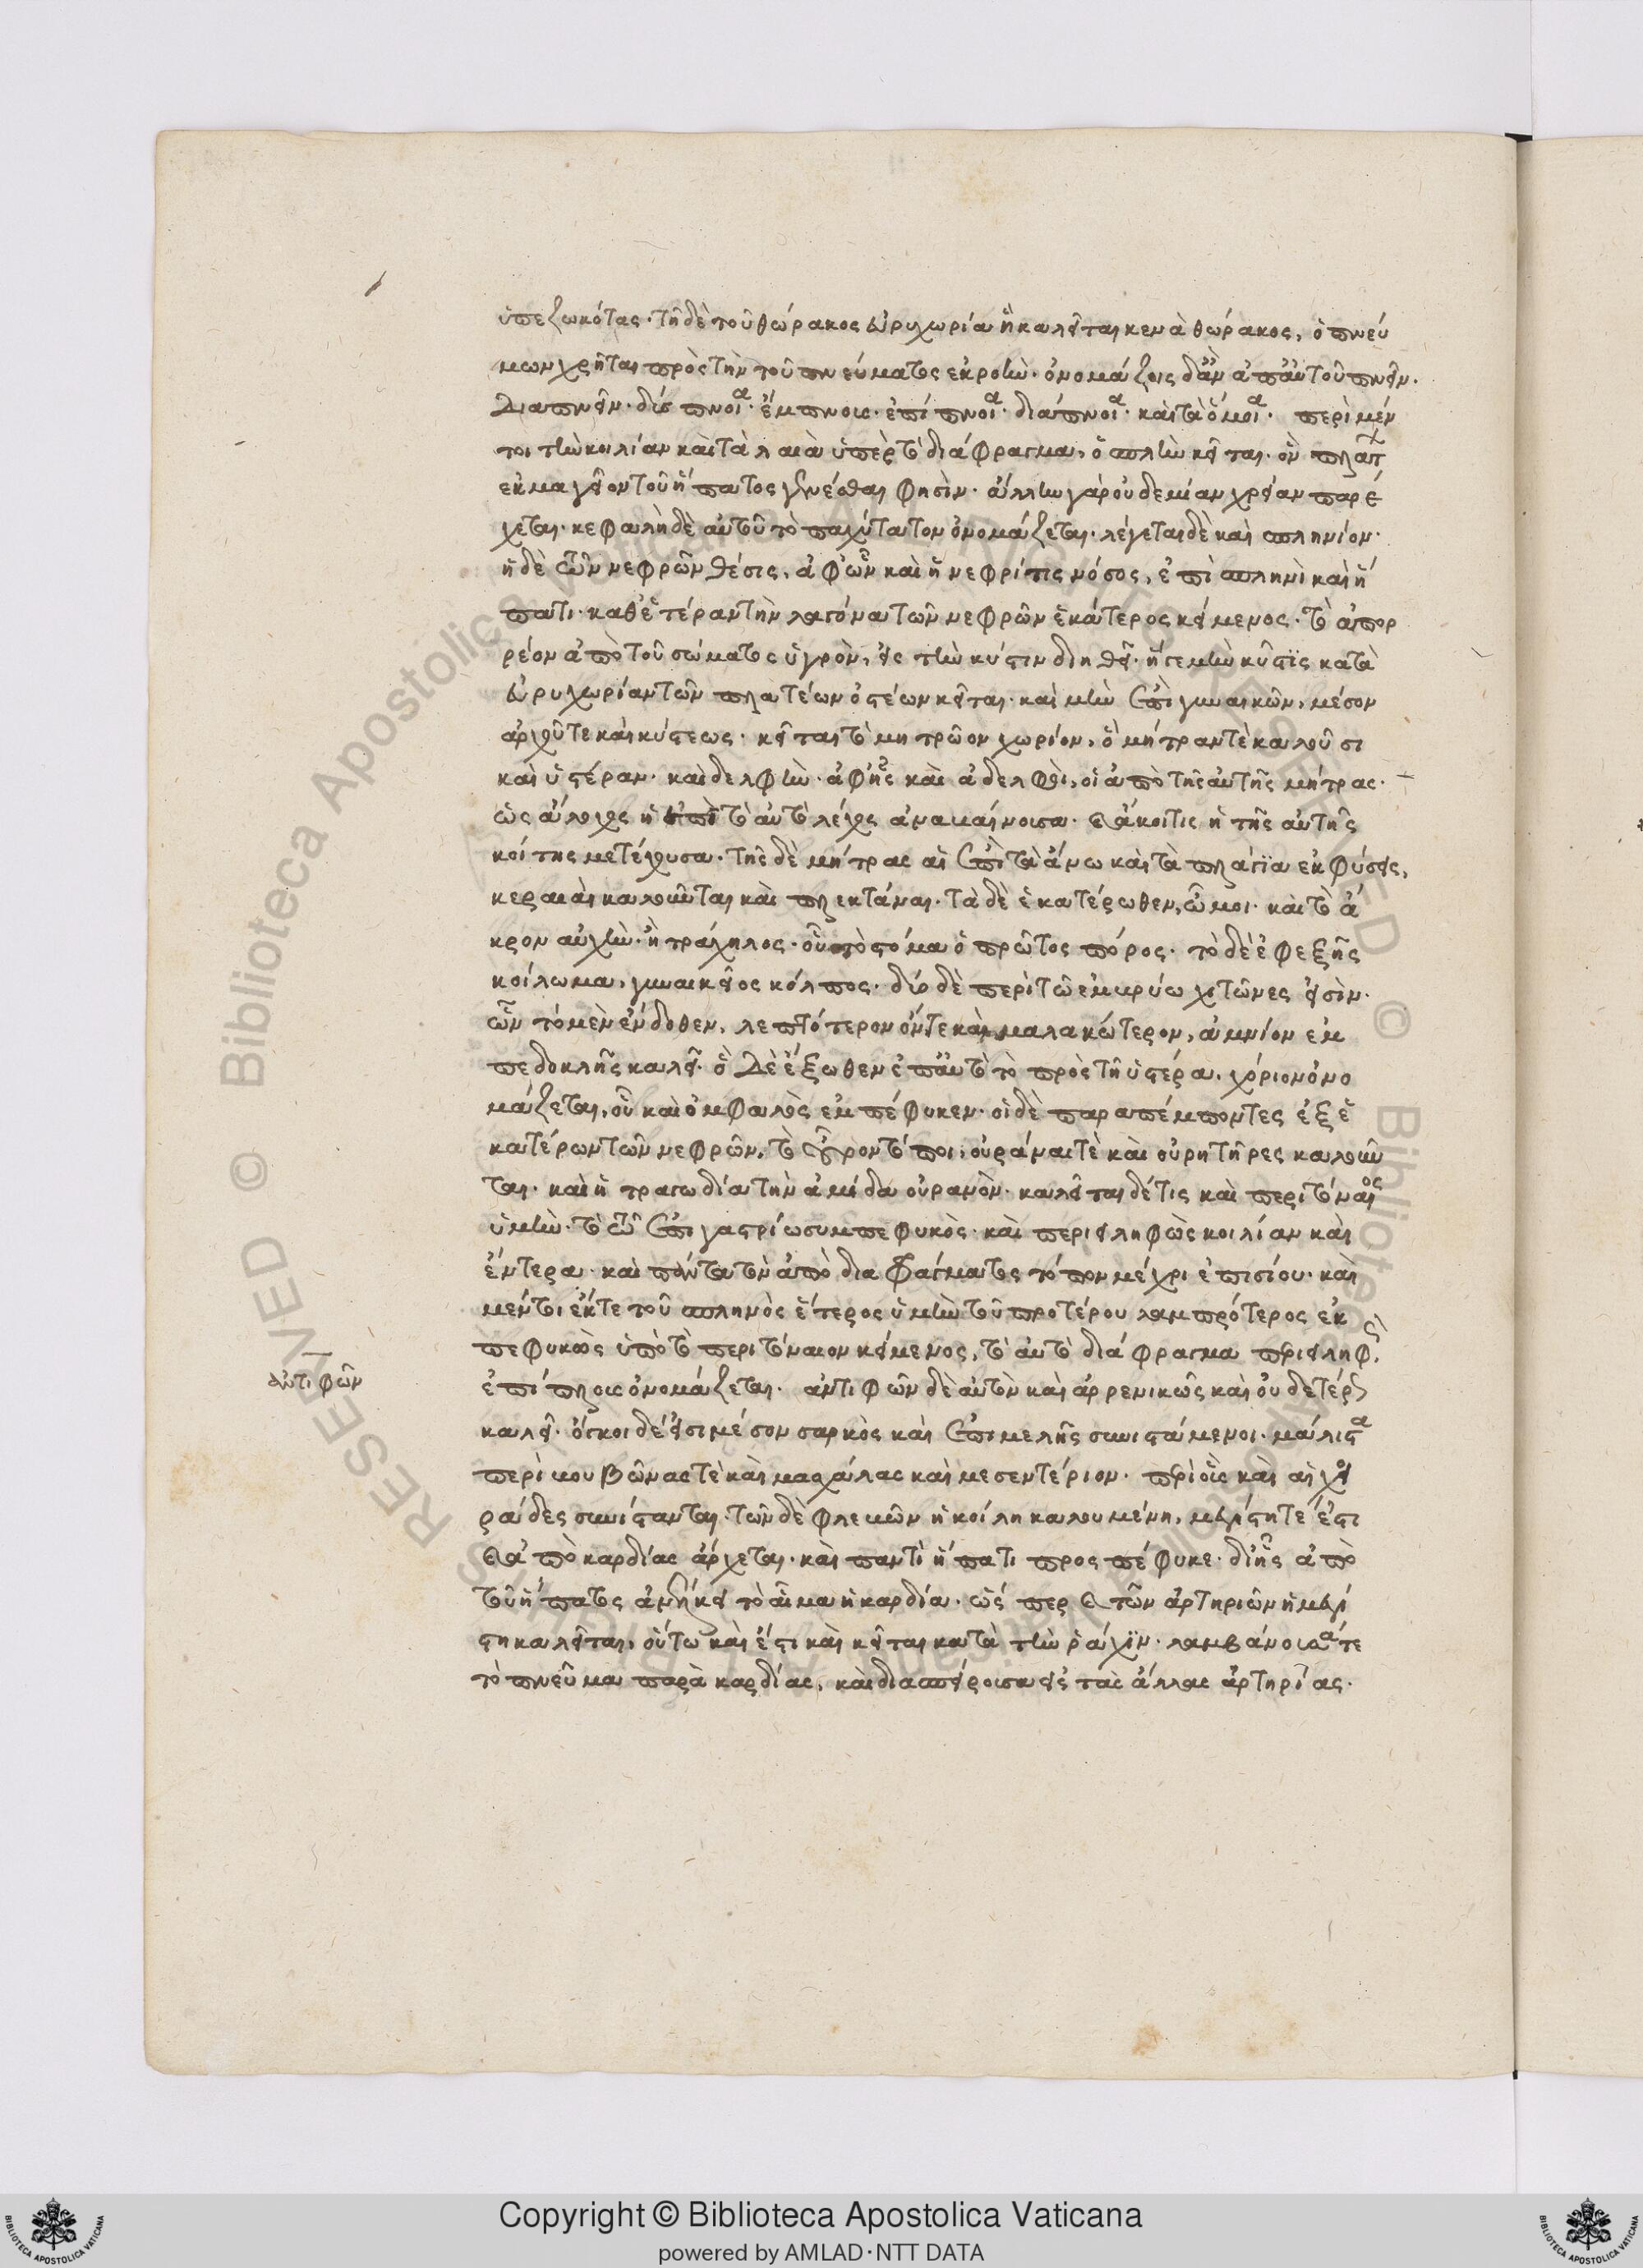 ὑπεζωκότας· τῆ δὲ τοῦ θώρακος εὐρυχωρία ἣ καλεῖται κενὰ θώρακος, ὁ πνεύ
μων χρῆται πρὸς τὴν τοῦ πνεύματος εκροὴν· ὀνομάζοις δἂν ἀπαὐτοῦ πνεῖν·
διαπνεῖν· δύσπνοια· ἔμπνοις· ἐπίπνοια· διάπνοια· καὶ τὰ ὅμοια· περὶ μέν
τοι τὴν κοιλίαν καὶ τὰ λαιὰ ὑπὲρ τὸ διάφραγμα, ὁ σπλὴν κεῖται· ὃν πλάτ
εκμαγεῖον τοῦ ἥπατος γενέσθαι φησὶν· ἄλλην γὰρ οὐδεμίαν χρείαν παρέ
χεται· κεφαλὴ δὲ αὐτοῦ τὸ παχύτατον ὀνομάζεται· λέγεται δὲ καὶ σπληνίον·
ἡ δὲ τῶν νεφρῶν θέσις, ἀφ' ὧν καὶ ἡ νεφρίτις νόσος, ἐπὶ σπληνὶ καὶ ἥ
πατι· καθ' ἑτέραν τὴν λαγόνα τῶν νεφρῶν ἑκάτερος κείμενος· τὸ ἀπορ
ρέον ἀπὸ τοῦ σώματος ὑγρὸν, εἰς τὴν κύστιν διηθεῖ· ἥγε μὴν κῦστϊς κατὰ
εὐρυχωρίαν τῶν πλατέων ὀστέων κεῖται· καὶ μὴν ἐπὶ γυναικῶν, μέσον
ἀρχοῦ τε καὶ κύστεως· κεῖται τὸ μητρῶον χωρίον, ὃ μήτραν τὲ καλοῦσι
καὶ ὑστέραν· καὶ δελφὺν· ἀφ' ἧς καὶ ἀδελφοὶ, οἱ ἀπὸ τῆς αὐτῆς μήτρας·
ὡς ἄλοχος ἡ ἐπὶ τὸ αὐτὸ λέχος ἀναβαίνουσα· καὶ ἄκοιτις ἡ τῆς αὐτῆς
κοίτης μετέχουσα· τῆς δὲ μήτρας αἱ ἐπὶ τὰ ἄνω καὶ τὰ πλάγϊα εκφύσεις,
κεραιαὶ καλοῦνται καὶ πλεκτάναι· τὰ δὲ ἑκατέρωθεν, ὦμοι· καὶ τὸ ἄ
κρον αὐχὴν· ἢ τράχηλος· οὗ τὸ στόμα ὁ πρῶτος πόρος· τὸ δὲ ἐφεξῆς
κοίλωμα, γυναικεῖος κόλπος· δύο δὲ περὶ τῶ εμβρύω χιτῶνες εἰσὶν·
ὧν τὸ μὲν ἔνδοθεν, λεπτότερον ὄν τε καὶ μαλακώτερον, ἀμνίον εμ
πεδοκλῆς καλεῖ· ὃ δὲ ἔξωθεν ἐπ' αὐτὸ τὸ πρὸς τῆ ὑστέρα, χόριον ὀνο
μάζεται, οὗ καὶ ὀμφαλὸς εμπέφυκεν· οἱ δὲ παραπέμποντες ἐξ ἑ
κατέρων τῶν νεφρῶν, τὸ ὑγρὸν τόποι, οὐράναι τὲ καὶ οὐρητῆρες καλοῦν
ται· καὶ ἡ τραγωδία τὴν ἀμίδα οὐρανὸν· καλεῖται δέ τις καὶ περιτόναιος
ὑμὴν· τὸ τῶ ἐπιγαστρίω συμπεφυκὸς· καὶ περιειληφὼς κοιλίαν καὶ
ἔντερα· καὶ πάντα τὸν ἀπὸ διαφράγματος τόπον μέχρι ἐπισίου· καὶ
μέντοι ἔκ τε τοῦ σπληνὸς ἕτερος ὑμὴν τοῦ προτέρου λαμπρότερος εκ
πεφυκὼς ὑπὸ τὸ περιτόναιον κείμενος, τὸ αὐτὸ διάφραγμα περιειληφὼς
ἐπίπλοις ὀνομάζεται· ἀντιφῶν δὲ αὐτὸν καὶ ἀρρενικῶς καὶ οὐδετέρως
καλεῖ· ὄγκοι δέ εἰσι μέσον σαρκὸς καὶ ἐπιμελῆς συνιστάμενοι· μάλιστα
περὶ βουβῶνας τὲ καὶ μασχάλας καὶ μεσεντέριον· περὶ οἷς καὶ αἱ χοι
ράδες συνίστανται· τῶν δὲ φλεβῶν ἡ κοίλη καλουμένη, μεγίστη τέ ἐστι
καὶ ἀπὸ καρδίας ἄρχεται· καὶ παντὶ ἥπατι προσπέφυκε· δι' ἧς ἀπὸ
τοῦ ἥπατος ἀνέλκει τὸ αἷμα ἡ καρδία· ὥσπερ καὶ τῶν ἀρτηριῶν ἡ μεγί
στη καλεῖται, οὕτω καὶ ἔστι καὶ κεῖται κατὰ τὴν ῥάχϊν· λαμβάνουσά τε
τὸ πνεῦμα παρὰ καρδίας, καὶ διασπείρουσα εἰς τὰς ἄλλας ἀρτηρίας·
ἀντιφῶν
Copyright © Biblioteca Apostolica Vaticana
powered by AMLAD·NTT DATA